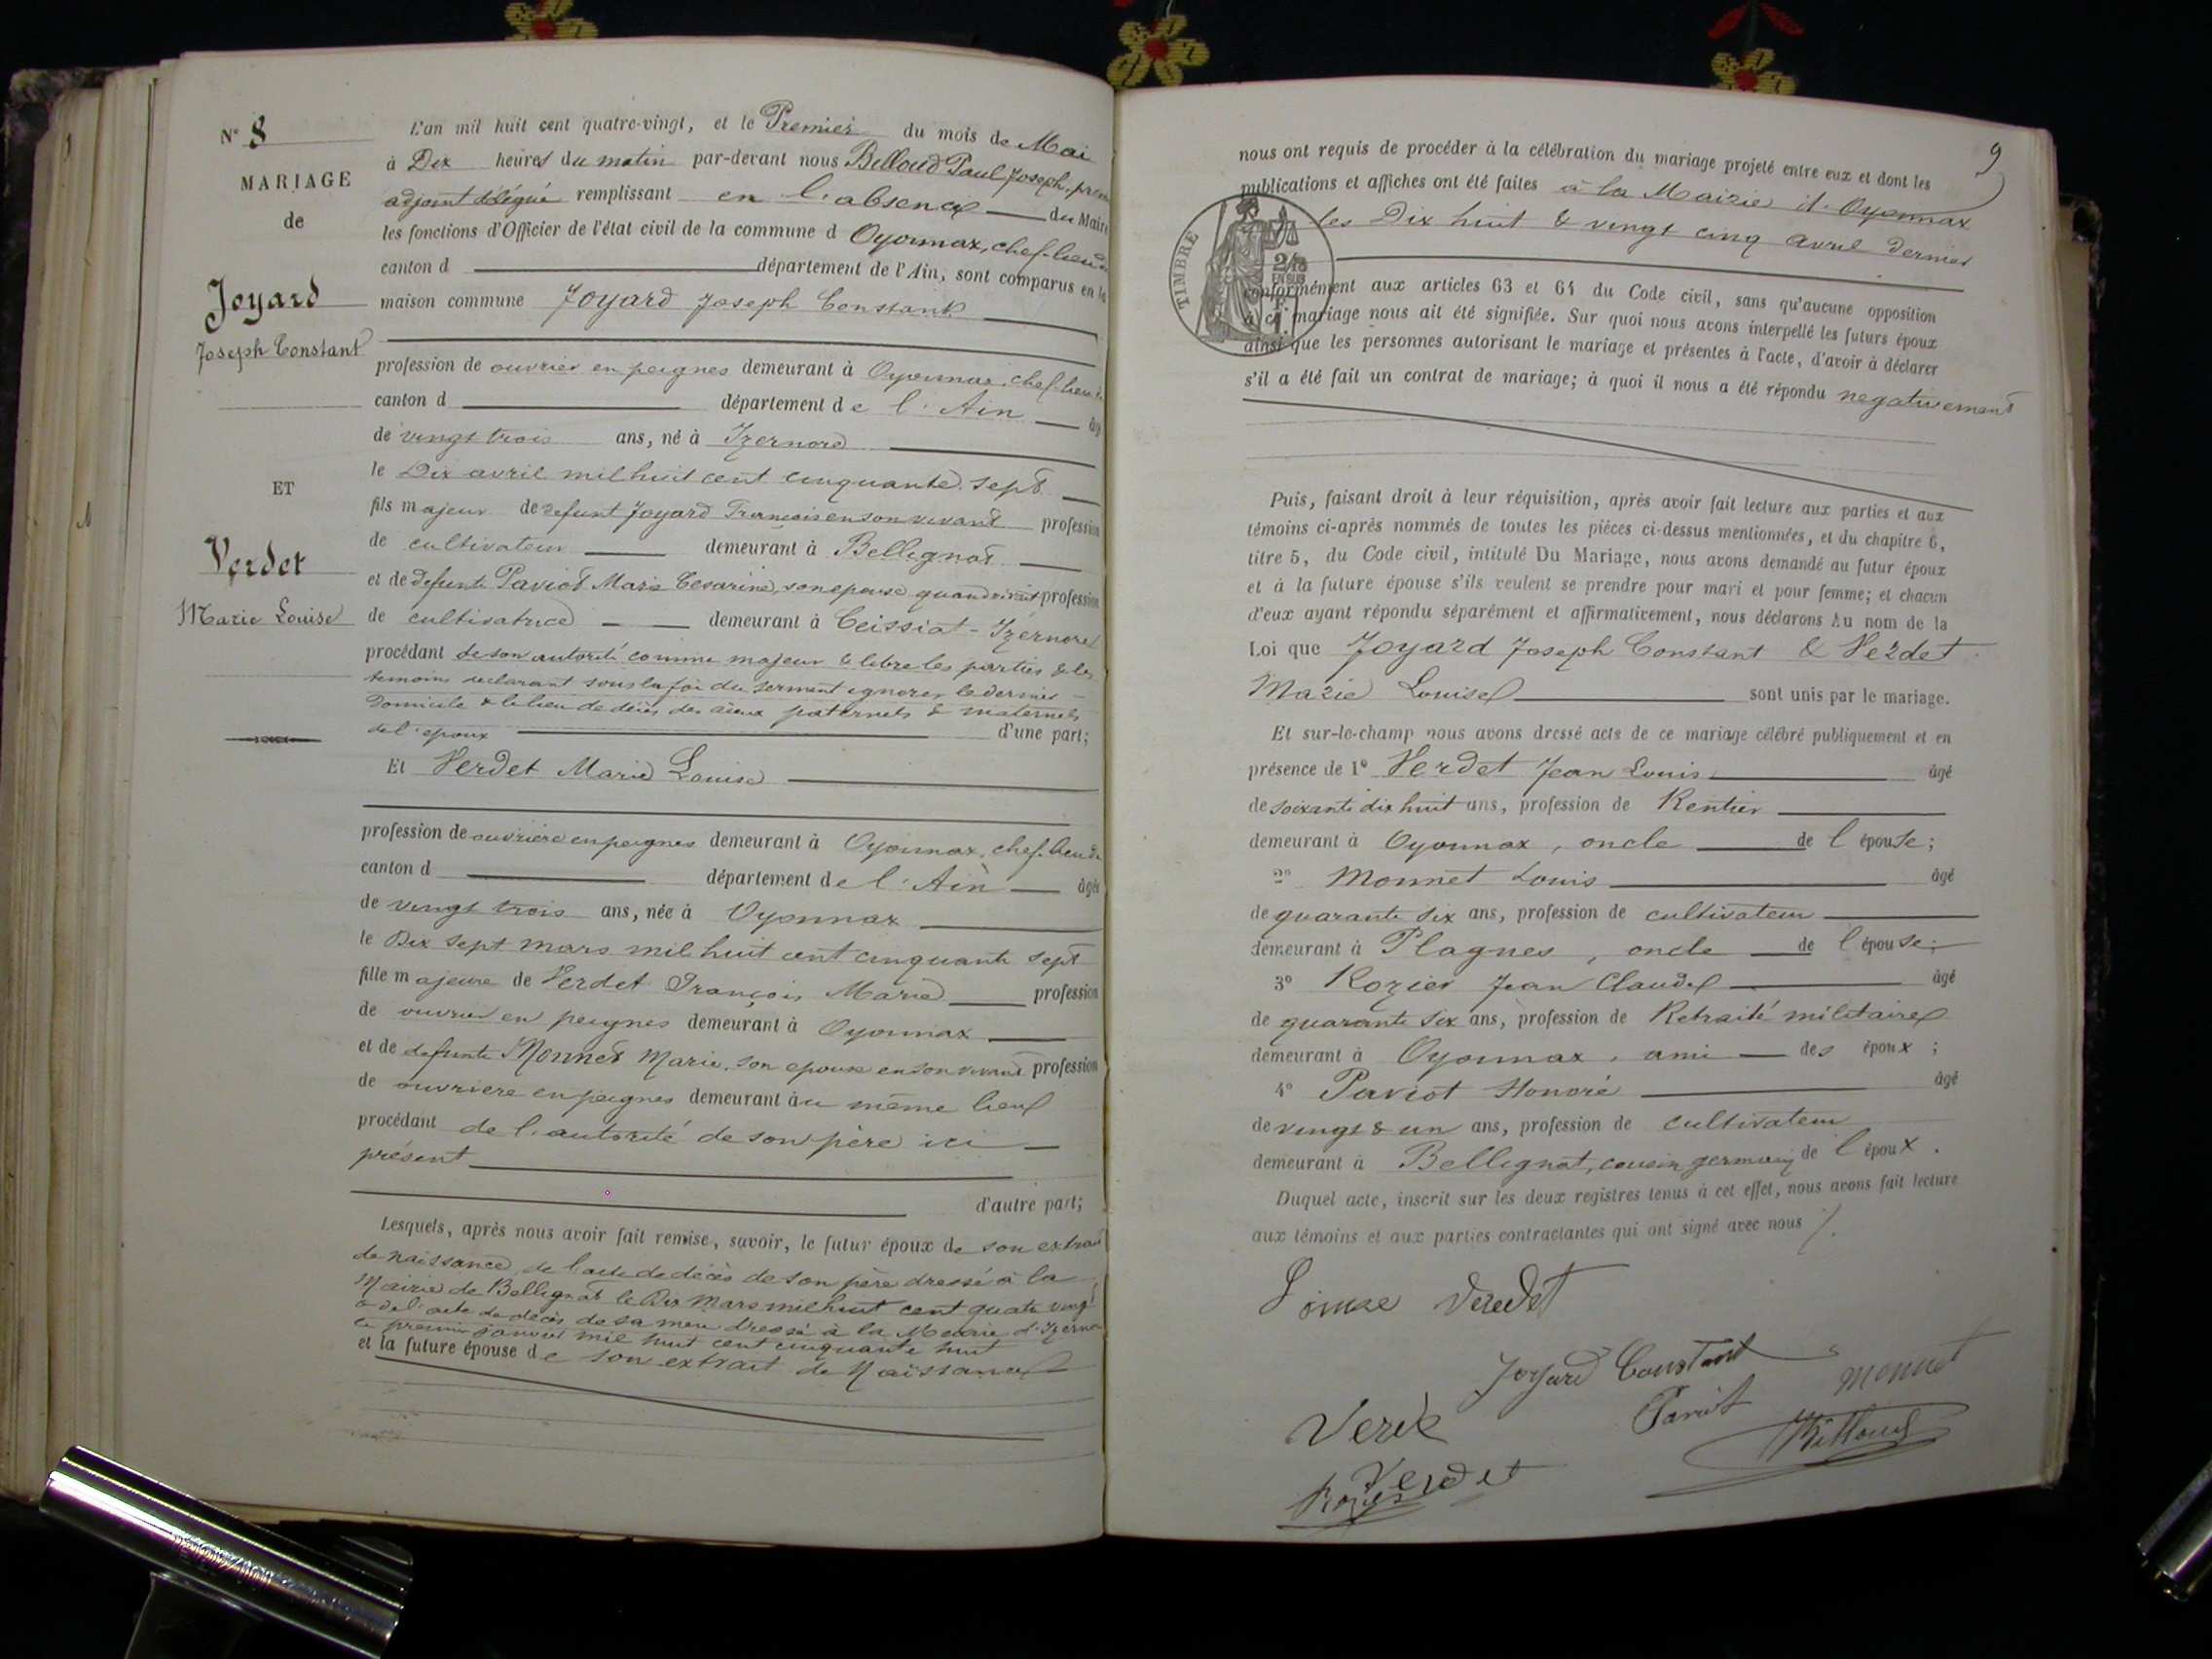 N° 8
MARIAGE
de
Joyard
Joseph Constant
ET
Verdet
Marie Louise
L'an mil huit cent quatre-vingt, et le Premier du mois de Mai
à Dix heures du matin par-devant nous Billoud Paul Joseph,
adjoint délégué remplissant en l'absence du Maire
les fonctions d'Officier de l'état civil de la commune d Oyonnax, chef-lieu de
canton d département de l'Ain, sont comparus en la
maison commune Joyard Joseph Constant
profession de ouvrier en peignes demeurant à Oyonnax, chef-lieu de
canton d département de l'Ain âgé
de vingt trois ans, né à Izernore
le Dix avril mil huit cent cinquante sept
fils majeur de défunt Joyard François en son vivant profession
de cultivateur demeurant à Bellignat
et de défunte Paviot Marie Césarine, son épouse quand vivait profession
de cultivatrice demeurant à Ceissiat - Izernore
procédant de son autorité comme majeur & libre les parties & les
témoins déclarant sous la foi du serment ignorer le dernier
domicile & le lieu de décès des aïeux paternels & maternels
de l'époux d'une part;
Et Verdet Marie Louise
profession de ouvrière en peignes demeurant à Oyonnax, chef-lieu de
canton d département de l'Ain âgée
de vingt trois ans, née à Oyonnax
le Dix sept mars mil huit cent cinquante sept
fille majeure de Verdet François Marie profession
de ouvrier en peignes demeurant à Oyonnax
et de défunte Monnet Marie, son épouse en son vivant profession
de ouvrière en peignes demeurant àu même lieu
procédant de l'autorité de son père ici
présent
d'autre part;
Lesquels, après nous avoir fait remise, savoir, le futur époux de son extrait
de naissance, de l'acte de décès de son père dressé à la
Mairie de Bellignat le Dix Mars mil huit cent quatre vingt
& de l'acte de décès de sa mère dressé à la Mairie d'Izernore
le premier janvier mil huit cent cinquante huit
et la future épouse de son extrait de Naissance
9
nous ont requis de procéder à la célébration du mariage projeté entre eux et dont les
publications et affiches ont été faites à la Mairie d'Oyonnax
les Dix huit & vingt cinq avril dernier
TIMBRE
2/10
EN SUS
conformément aux articles 63 et 64 du Code civil, sans qu'aucune opposition
à ce mariage nous ait été signifiée. Sur quoi nous avons interpellé les futurs époux
ainsi que les personnes autorisant le mariage et présentes à l'acte, d'avoir à déclarer
s'il a été fait un contrat de mariage; à quoi il nous a été répondu negativement
Puis, faisant droit à leur réquisition, après avoir fait lecture aux parties et aux
témoins ci-après nommés de toutes les pièces ci-dessus mentionnées, et du chapitre 6,
titre 5, du Code civil, intitulé Du Mariage, nous avons demandé au futur époux
et à la future épouse s'ils veulent se prendre pour mari et pour femme; et chacun
d'eux ayant répondu séparément et affirmativement, nous déclarons Au nom de la
Loi que Joyard Joseph Constant & Verdet
Marie Louise sont unis par le mariage.
Et sur-le-champ nous avons dressé acte de ce mariage célébré publiquement et en
présence de 1° Verdet Jean Louis âgé
de soixante dix huit ans, profession de Rentier
demeurant à Oyonnax, oncle de l'épouse;
2° Monnet Louis âgé
de quarante six ans, profession de cultivateur
demeurant à Plagnes, oncle de l'épouse;
3° Rozier Jean Claude âgé
de quarante six ans, profession de Retraité militaire
demeurant à Oyonnax, ami des époux;
4° Paviot Honoré âgé
de vingt & un ans, profession de cultivateur
demeurant à Bellignat, cousin germain de l'époux.
Duquel acte, inscrit sur les deux registres tenus à cet effet, nous avons fait lecture
aux témoins et aux parties contractantes qui ont signé avec nous %.
Louise Verdet
Joyard Constant
Monnet
Paviot
Billoud
Verdet
Rozier